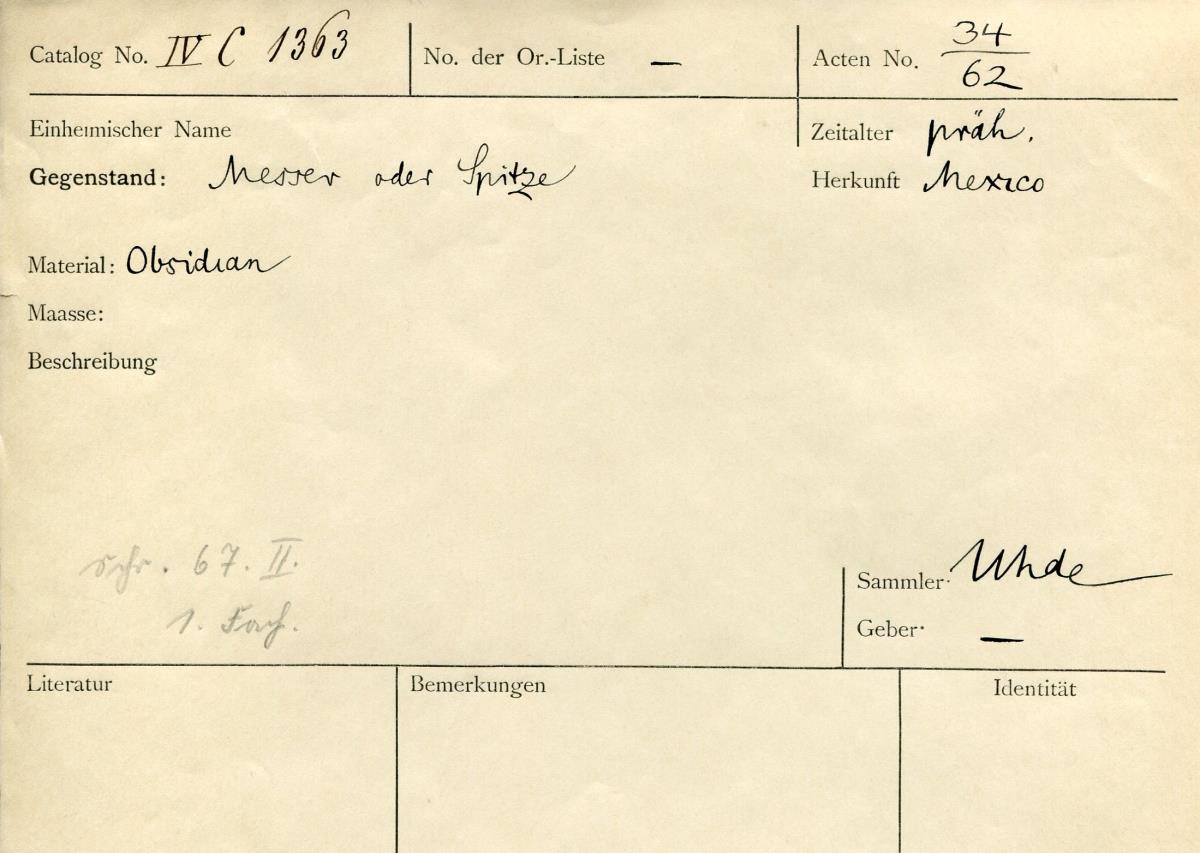 Catalog No. IV C 1363
No. der Or.-Liste —
Acten No. 34/62
Einheimischer Name
Zeitalter präh.
Gegenstand: Messer oder Spitze
Herkunft Mexico
Material: Obsidian
Maasse:
Beschreibung
Schr. 67. II.
1. Fach.
Sammler· Uhde
Geber· —
Literatur
Bemerkungen
Identität